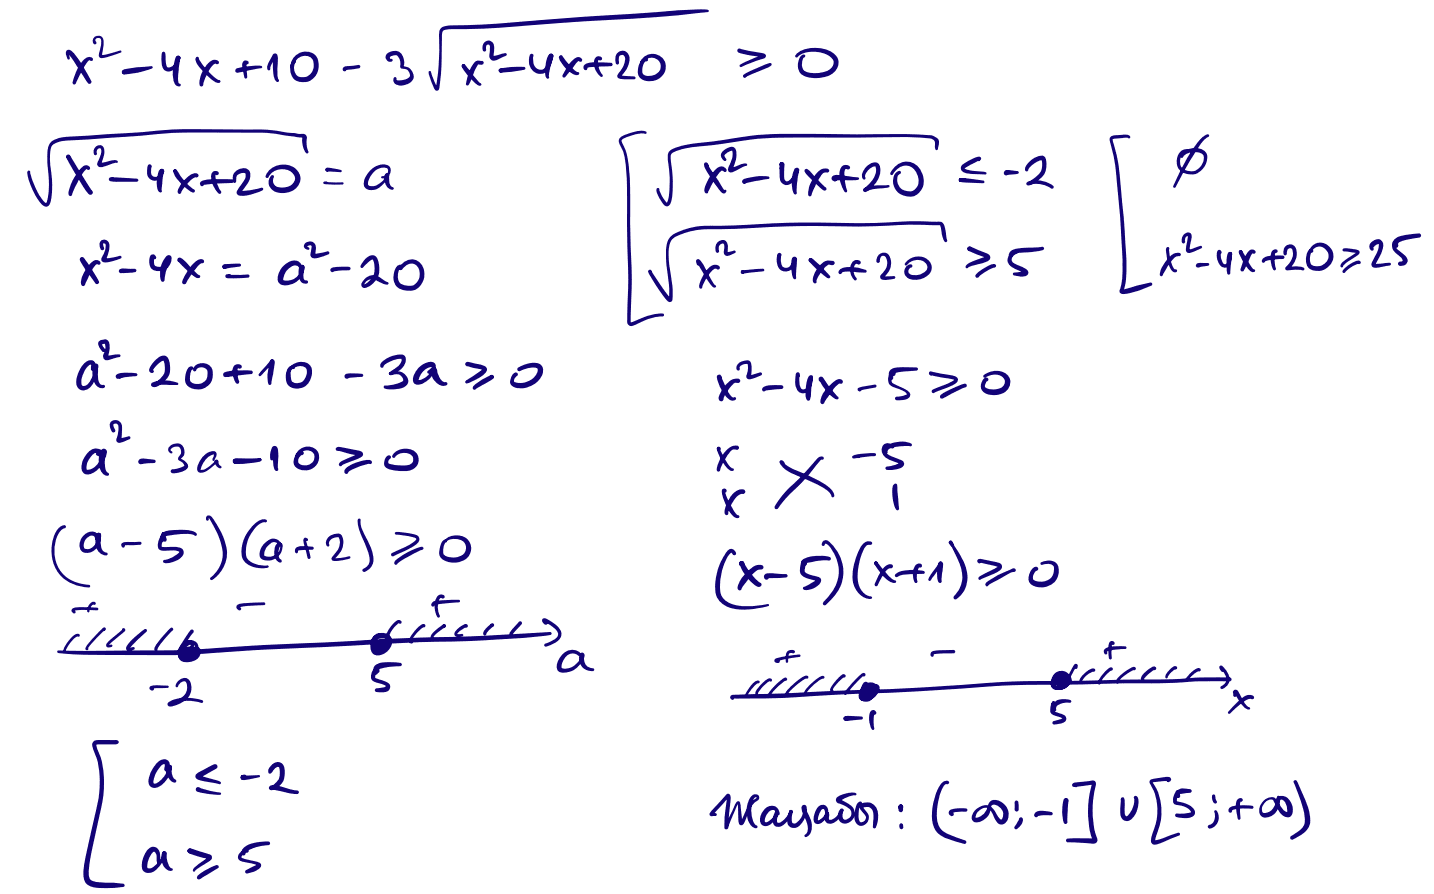 x² - 4x + 10 - 3√(x² - 4x + 20) ≥ 0
√(x² - 4x + 20) = a
x² - 4x = a² - 20
a² - 20 + 10 - 3a ≥ 0
a² - 3a - 10 ≥ 0
(a - 5)(a + 2) ≥ 0
+ - +
-2 5 a
[ a ≤ -2
a ≥ 5
[ √(x² - 4x + 20) ≤ -2
√(x² - 4x + 20) ≥ 5
[ ∅
x² - 4x + 20 ≥ 25
x² - 4x - 5 ≥ 0
x -5
x 1
(x - 5)(x + 1) ≥ 0
+ - +
-1 5 x
Жауабы: (-∞; -1] ∪ [5; +∞)